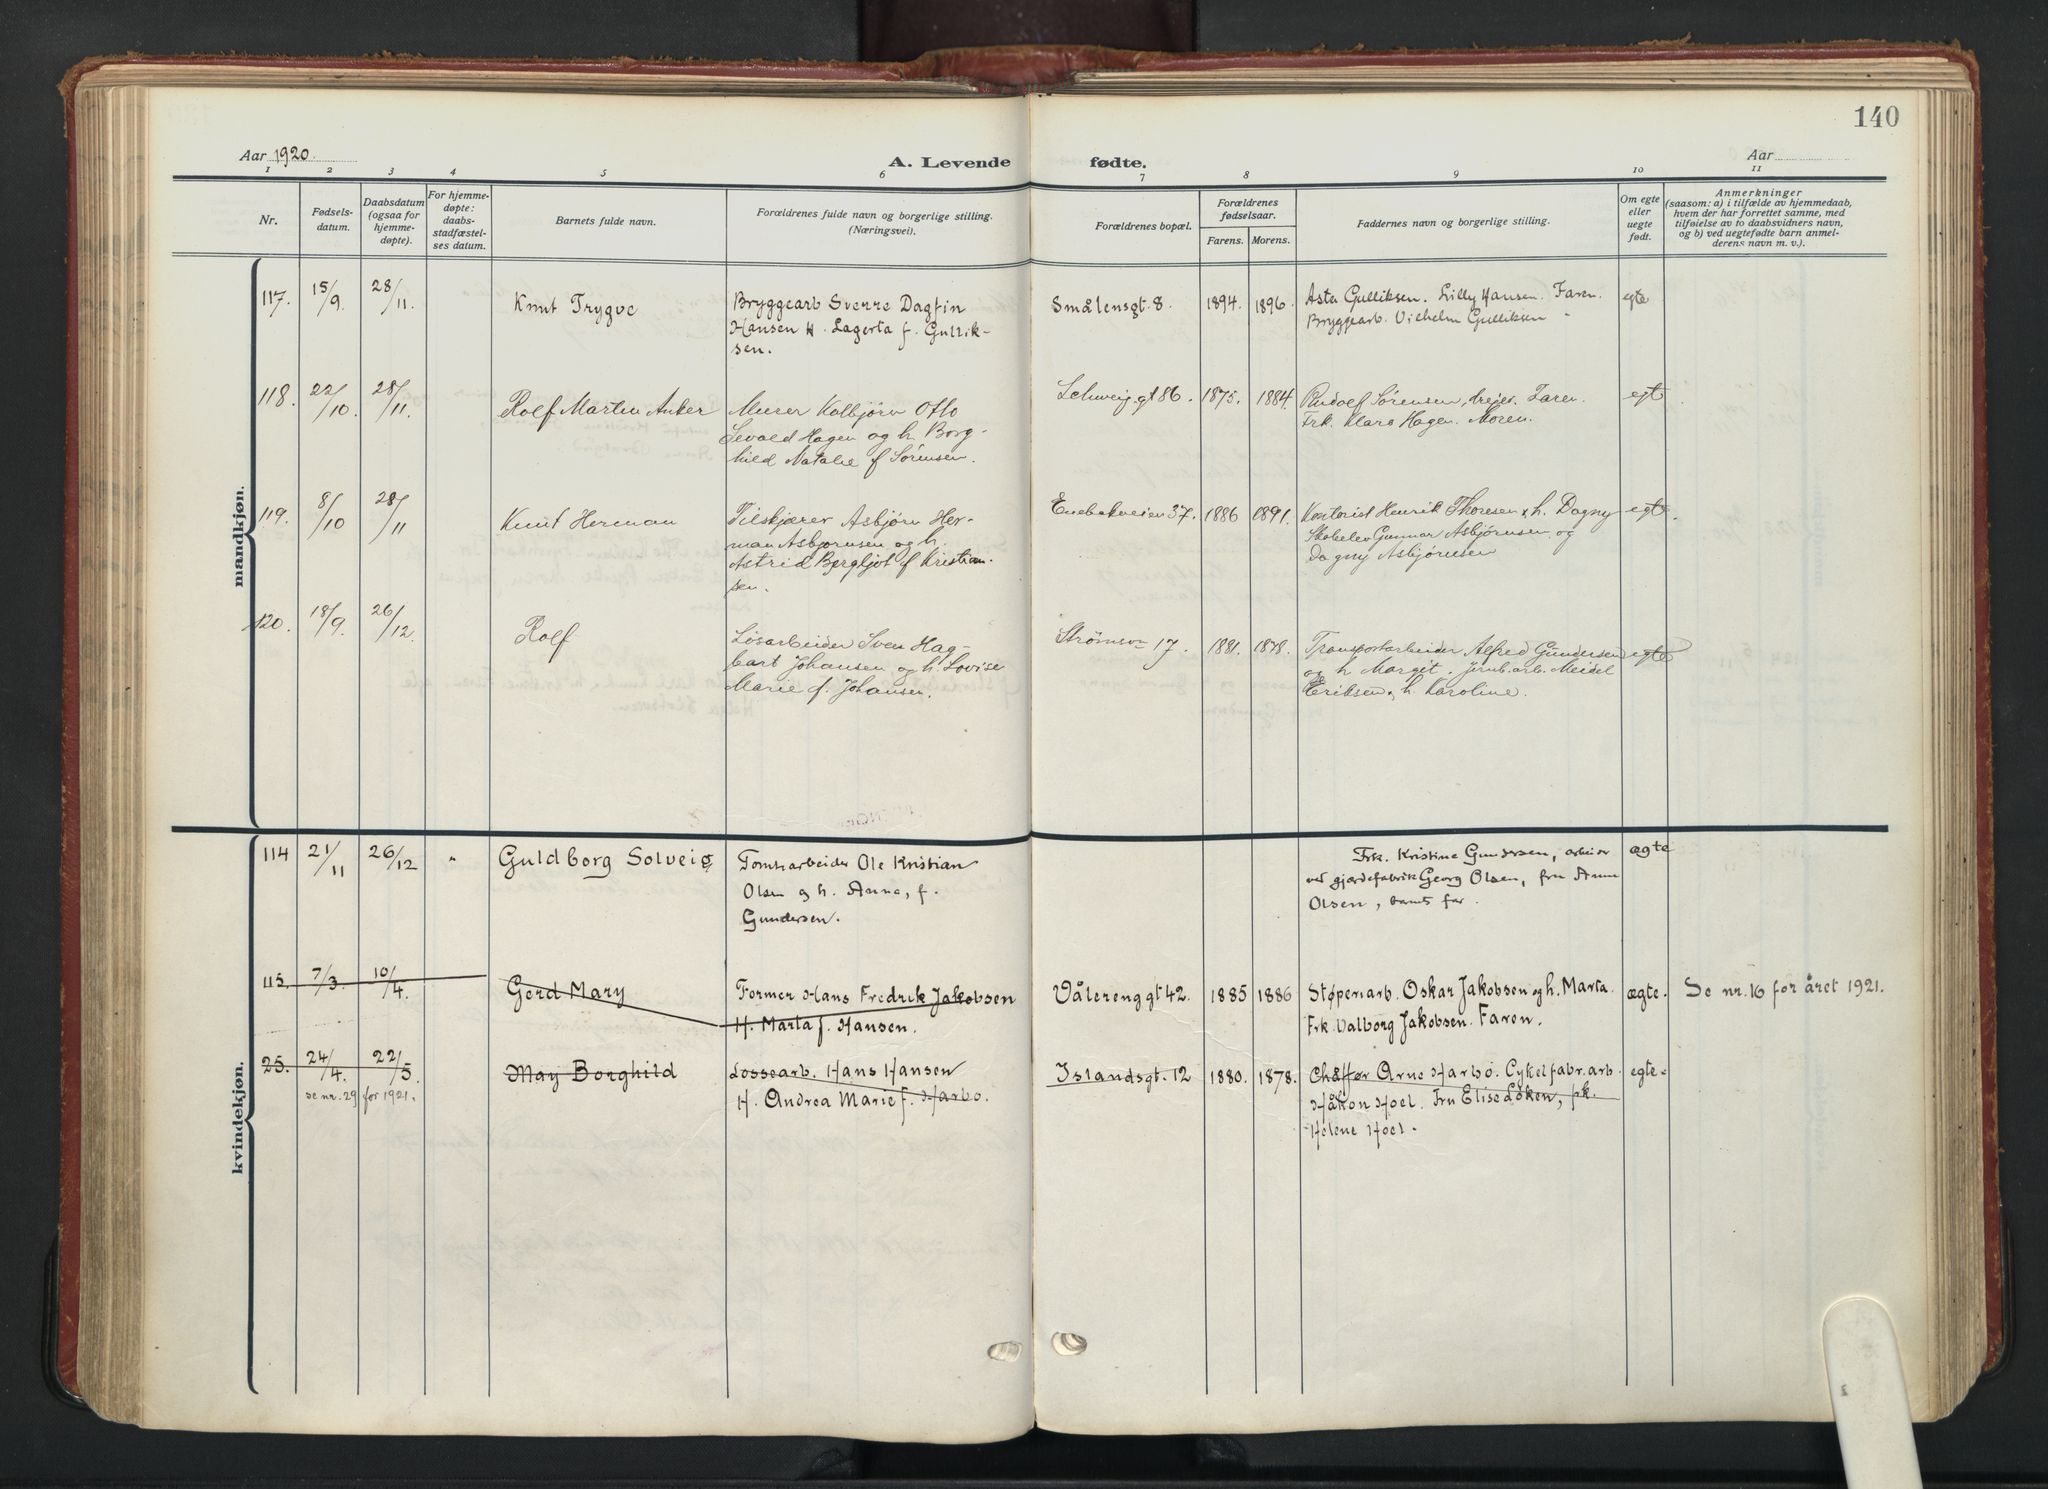 140
Aar 1920.
A. Levende fødte.
Aar
1 2 3 4 5 6 7 8 9 10 11
Nr.
Fødsels-
datum.
Daabsdatum
(ogsaa for
hjemme-
døpte).
For hjemme-
døpte:
daabs-
stadfæstel-
ses datum.
Barnets fulde navn.
Forældrenes fulde navn og borgerlige stilling.
(Næringsvei).
Forældrenes bopæl.
Forældrenes
fødselsaar.
Farens. Morens.
Faddernes navn og borgerlige stilling.
Om egte
eller
uegte
født.
Anmerkninger
(saasom: a) i tilfælde av hjemmedaab,
hvem der har forrettet samme, med
tilføielse av to daabsvidners navn,
og b) ved uegtefødte barn anmel-
derens navn m. v.).
mandkjøn.
117. 15/9. 28/11. Knut Trygve
Bryggearb Sverre Dagfin
Hansen H. Lagerta f. Gullik-
sen.
Smålensgt. 8. 1894. 1896.
Asta Gulliksen. Lilly Hansen. Faren.
Bryggearb. Vilhelm Gulliksen
egte
118. 22/10. 28/11. Rolf Martin Anker
Murer Kolbjørn Otto
Sevald Hagen og h. Borg-
hild Natalie f Sørensen.
Schweig.gt 86. 1875. 1884.
Rudolf Sørensen, drejer. Faren.
Frk. Klara Hagen. Moren.
egt
119. 8/10 28/11 Knut Herman
Tilskjærer Asbjørn Her-
man Asbjørnsen og h.
Astrid Bergljot f Kristian-
sen.
Enebakveien 37. 1886 1891.
Kontorist Henrik Thoresen & h. Dagny
Gunnar Asbjørnsen og
Dagny Asbjørnsen
egte.
120. 18/9. 26/12. Rolf
Løsarbeider Sven Hag-
bart Johansen og h. Lovise
Marie f. Johansen.
Strømsvn 17. 1881. 1878.
Transportarbeider Alfred Gundersen
og h Margit. Jernb.arb. Meidel
Eriksen & h. Karoline.
egte
kvindekjøn.
114 21/11 26/12 " Guldborg Solveig
Tomtarbeider Ole Kristian
Olsen og h. Anna, f.
Gundersen.
Frk. Kristine Gundersen, arbeier
ved gjærdefabrik Georg Olsen, fru Anna
Olsen, barnets far.
ægte
115. 7/3. 10/4. Gerd Mary
Former Hans Fredrik Jakobsen
H. Marta f. Hansen.
Vålerenggt 42. 1885 1886
Støperiarb. Oskar Jakobsen og h. Marta.
Frk. Valborg Jakobsen. Faren.
ægte. Se nr. 16 for året 1921.
25. 24/4. 22/5. May Borghild
se nr. 29 for 1921.
Lossearb. Hans Hansen
H. Andrea Marie f. Harbo.
Islandsgt. 12 1880. 1878.
Chaffør Arne Harbo. Cykelfabr.arb.
Håkon Hoel. Fru Elise Løken, frk.
Helene Hoel.
egte.